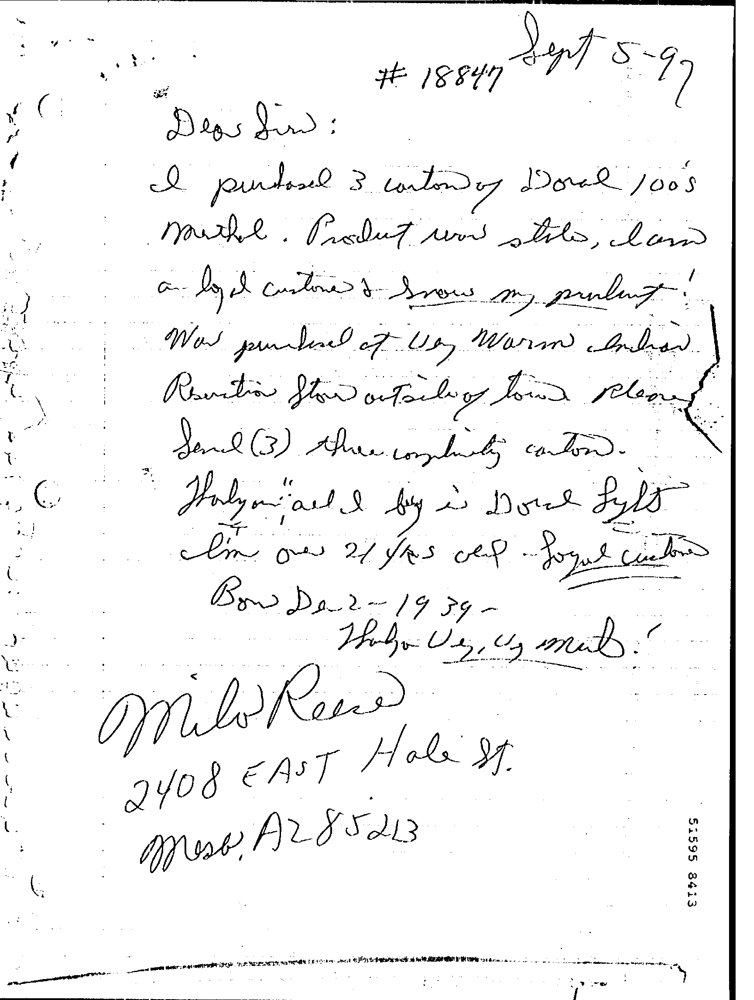 Sept 5-97
# 18847
Dear Sirs:
I purchased 3 carton of Doral 100's
Menthol. Product was stale, I am
a loyal customer & know my product!
Was purchased at Very Warm Indian
Reservation Store outside of town Please
Send (3) three complimentary carton.
Thank you "all I buy is Doral Lights
I'm over 21 yrs old - Loyal customer
Born Dec 2 - 1939 -
Thank you Very, Very much!
Milo Reese
2408 EAST Hale St.
Mesa, AZ 85213
51595 8413